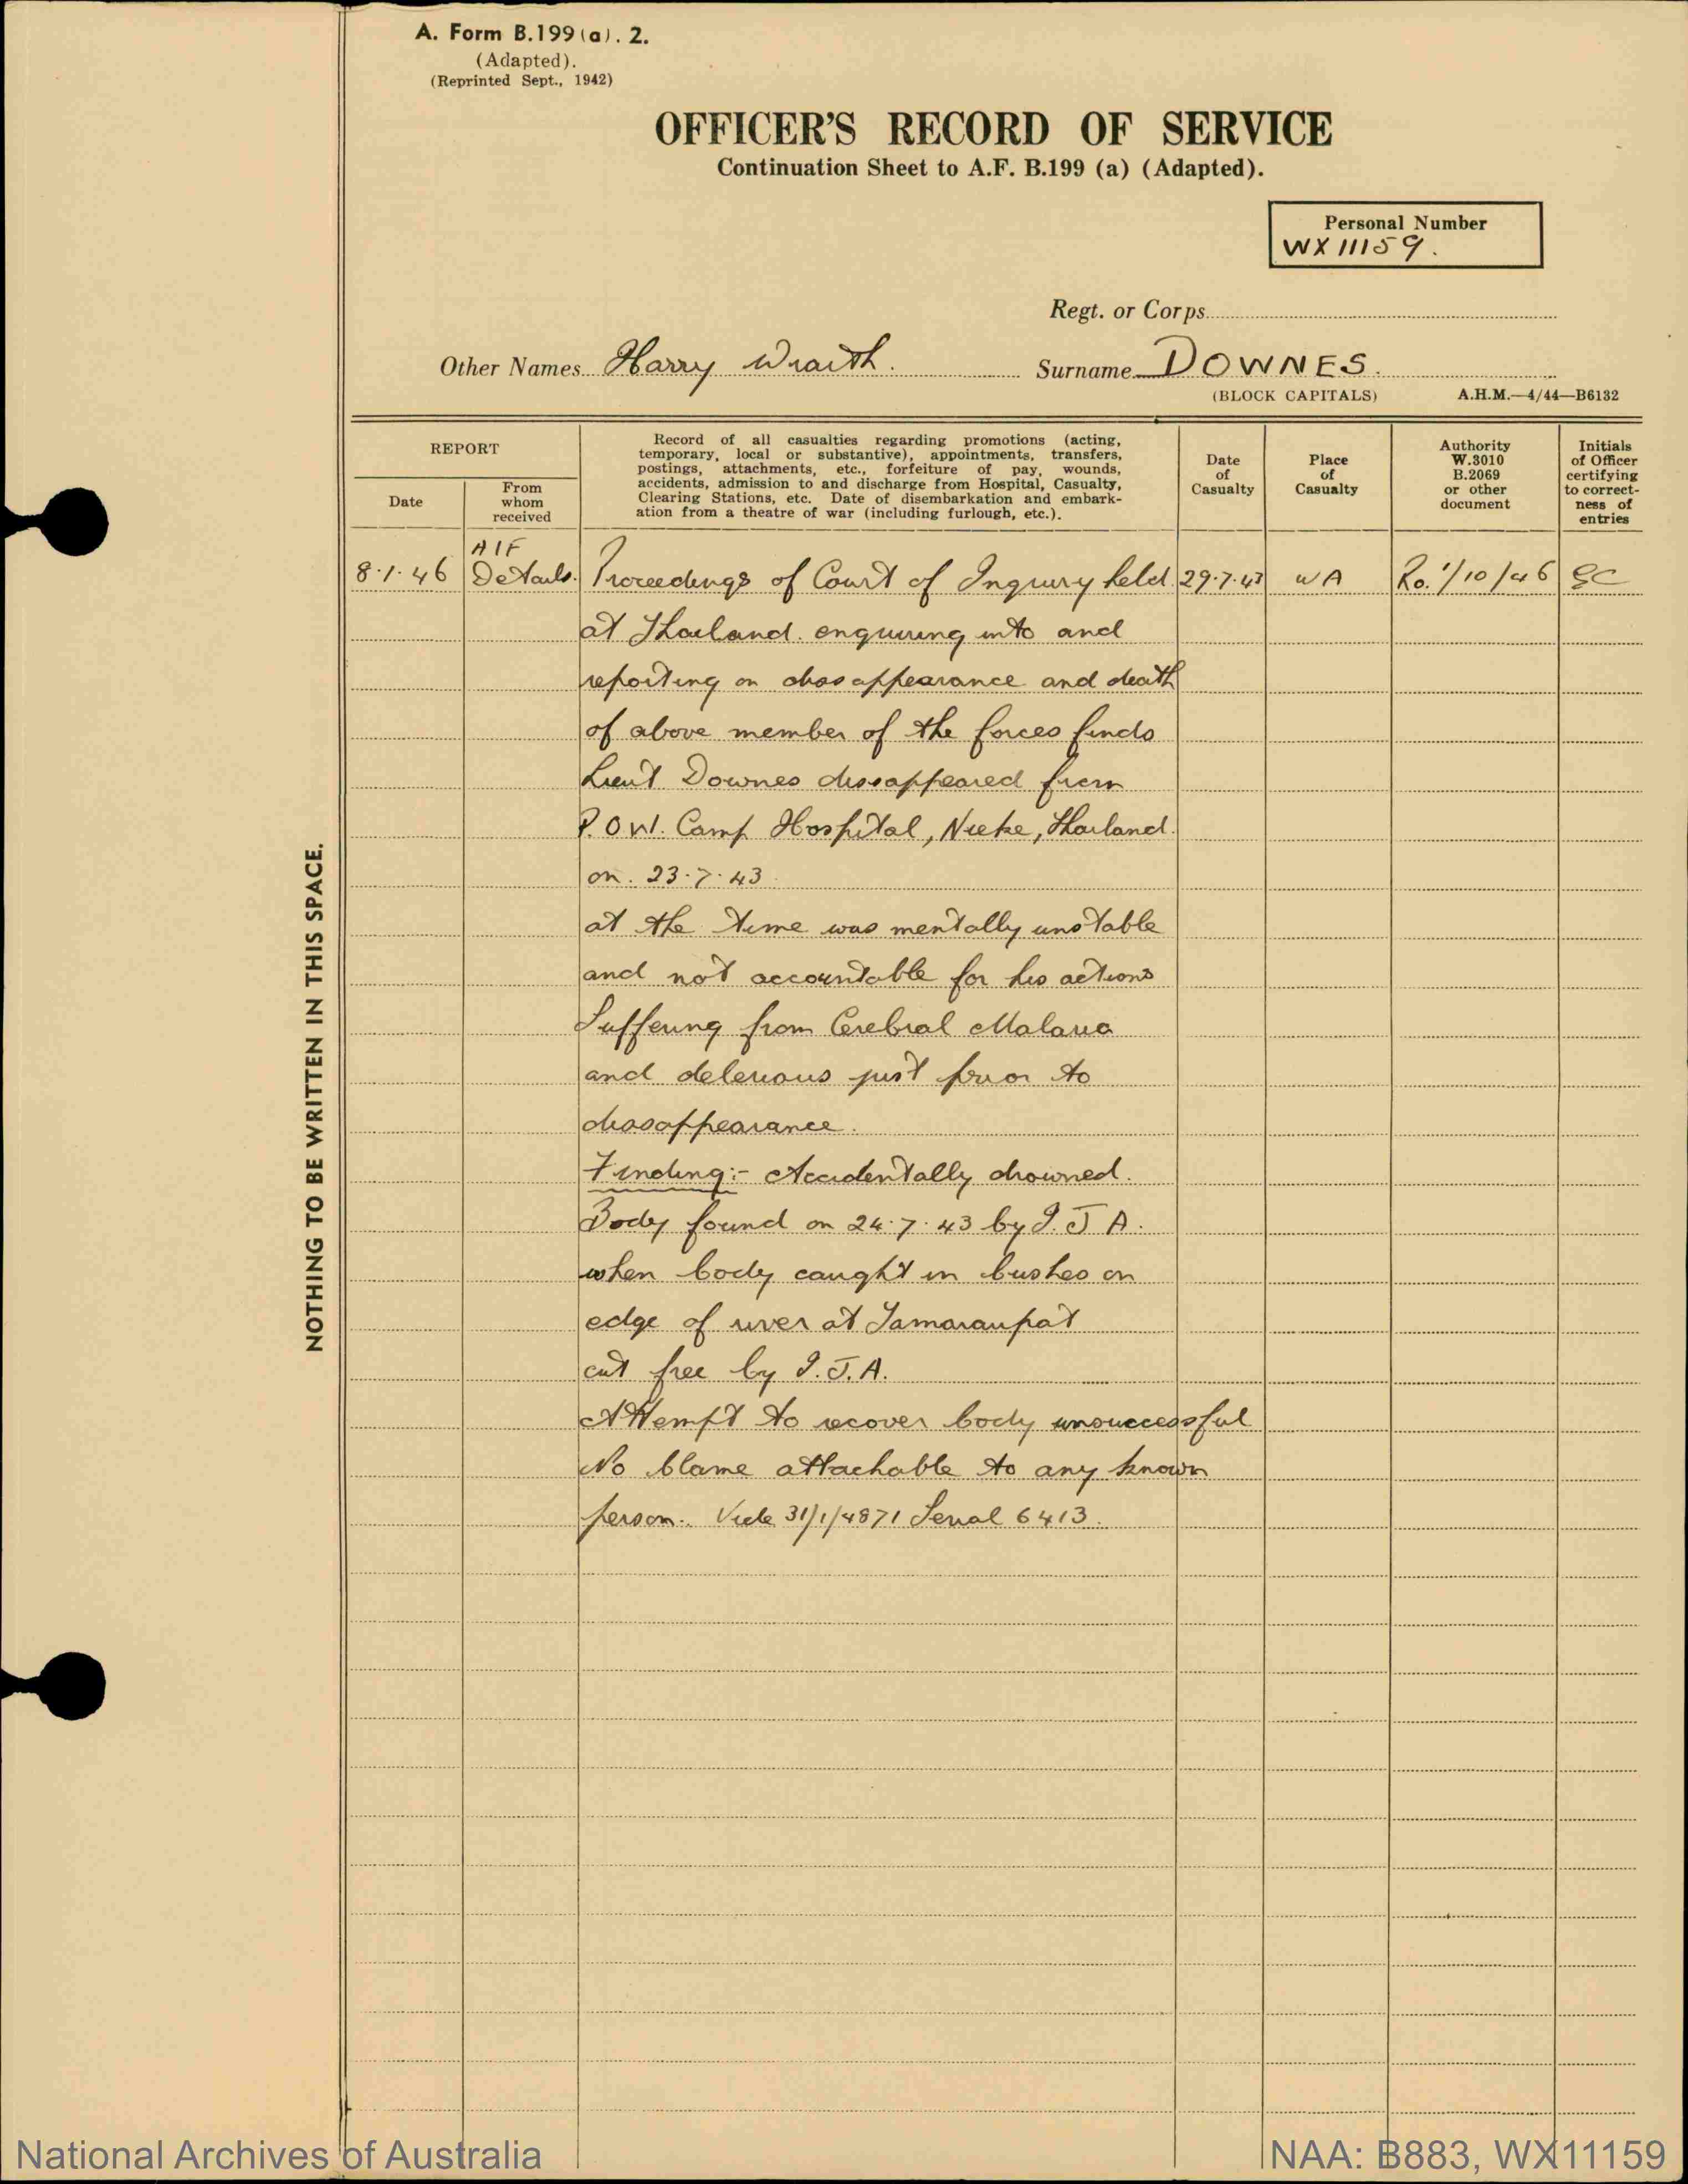 A. Form B.199(a). 2.
(Adapted).
(Reprinted Sept., 1942)
OFFICER'S RECORD OF SERVICE
Continuation Sheet to A.F. B.199 (a) (Adapted).
Personal Number
WX 11159.
Regt. or Corps
Other Names Harry Wraith. Surname DOWNES.
(BLOCK CAPITALS) A.H.M.—4/44—B6132
REPORT
Date
From whom received
Record of all casualties regarding promotions (acting,
temporary, local or substantive), appointments, transfers,
postings, attachments, etc., forfeiture of pay, wounds,
accidents, admission to and discharge from Hospital, Casualty,
Clearing Stations, etc. Date of disembarkation and embark-
ation from a theatre of war (including furlough, etc.).
Date
of
Casualty
Place
of
Casualty
Authority
W.3010
B.2069
or other
document
Initials
of Officer
certifying
to correct-
ness of
entries
AIF
8.1.46 Details. Proceedings of Court of Inquiry held 29.7.43 WA Ro. 1/10/46
at Thailand. enquiring into and
reporting on dissappearance and death
of above member of the forces finds
Lieut Downes dissappeared from
P.O.W. Camp Hospital, Nieke, Thailand.
on. 23.7.43
at the time was mentally unstable
and not accountable for his actions
Suffering from Cerebral Malaria
and delerious just prior to
dissappearance.
Finding:- Accidentally drowned.
Body found on 24.7.43 by I.J A.
when body caught in bushes on
edge of river at Tamaraupat
cut free by I.J.A.
Attempt to recover body unsuccessful
No blame attachable to any known
person. Vide 31/1/4871 Serial 6413.
NOTHING TO BE WRITTEN IN THIS SPACE.
National Archives of Australia
NAA: B883, WX11159